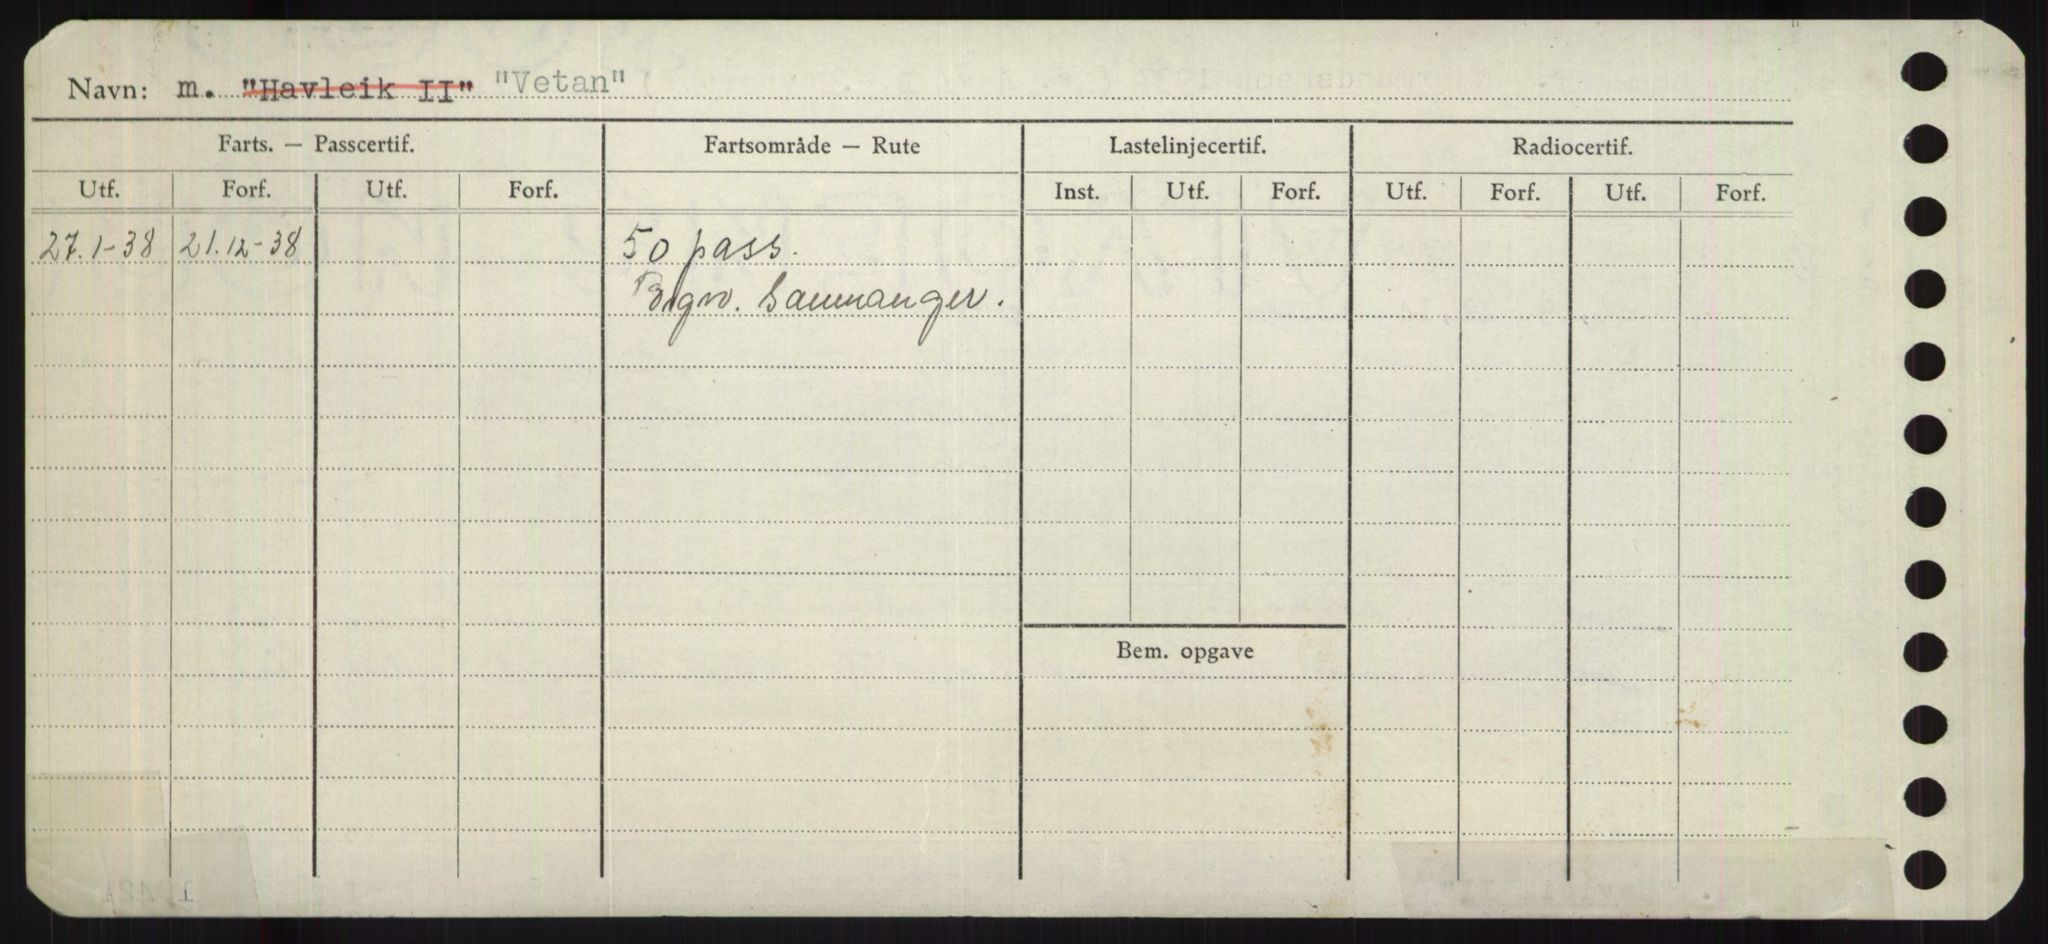 Navn: m. "Havleik II" "Vetan"
Farts. — Passcertif. Fartsområde — Rute Lastelinjecertif. Radiocertif.
Utf. Forf. Utf. Forf. Inst. Utf. Forf. Utf. Forf. Utf. Forf.
27.1-38 21.12-38 50 pass.
Samnanger.
Bem. opgave